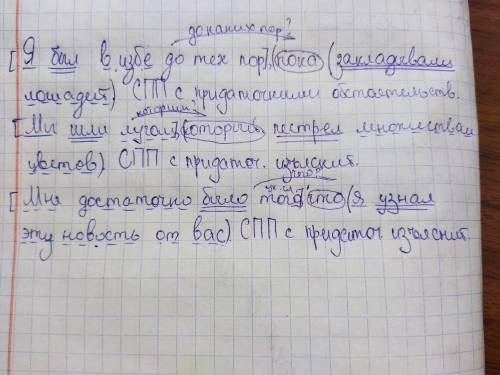 до каких пор?
[Я был в избе до тех пор], (пока (закладывали
лошадей) СПП с придаточними обстоятельств.
который?
[Мы шли лугом], (который пестрел множеством
цветов) СПП с придаточ. изъяснит.
чего?
[Мне достаточно было того], что (я узнал
эту новость от вас) СПП с придаточ изъяснит.